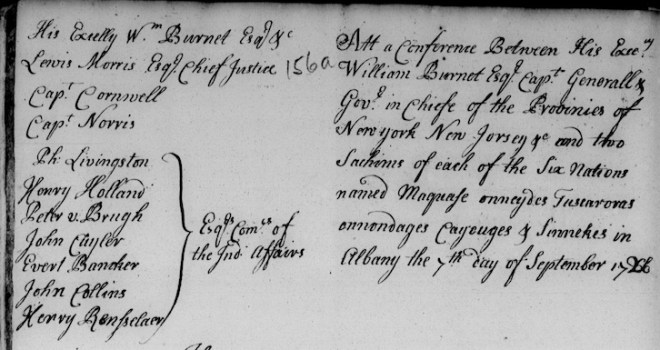 His Excelly Wm Burnet Esqr &c
Lewis Morris Esqr Chief Justice
Capt Cornwell
Capt Norris
Ph: Livingston
Henry Holland
Peter v. Brugh
John Cuyler
Evert Bancker
John Collins
Henry Renselaer
Esqrs Comrs of
the Ind Affairs
156a
Att a Conference Between His Excey
William Burnet Esqr Capt Generall &
Govr in Chiefe of the Provinies of
New york New Jersey &c and two
Sachims of each of the Six Nations
named Maquase onneydes Tuscaroras
onnondages Cayouges & Sinnekes in
Albany the 7th day of September